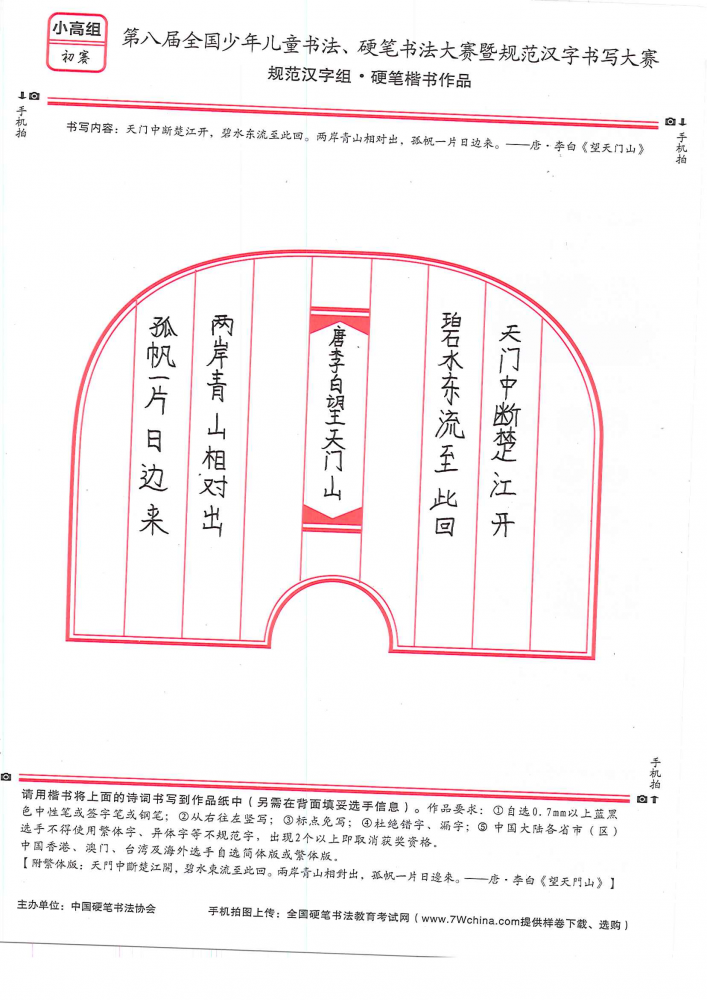 小高组
初赛
第八届全国少年儿童书法、硬笔书法大赛暨规范汉字书写大赛
规范汉字组·硬笔楷书作品
手机拍
手机拍
书写内容：天门中断楚江开，碧水东流至此回。两岸青山相对出，孤帆一片日边来。——唐·李白《望天门山》
天门中断楚江开
碧水东流至此回
唐李白望天门山
两岸青山相对出
孤帆一片日边来
手机拍
请用楷书将上面的诗词书写到作品纸中（另需在背面填妥选手信息）。作品要求：①自选0.7mm以上蓝黑
色中性笔或签字笔或钢笔；②从右往左竖写；③标点免写；④杜绝错字、漏字；⑤中国大陆各省市（区）
选手不得使用繁体字、异体字等不规范字，出现2个以上即取消获奖资格。
中国香港、澳门、台湾及海外选手自选简体版或繁体版。
【附繁体版：天門中斷楚江開，碧水東流至此回。兩岸青山相對出，孤帆一片日邊來。——唐·李白《望天門山》】
主办单位：中国硬笔书法协会
手机拍图上传：全国硬笔书法教育考试网（www.7Wchina.com提供样卷下载、选购）